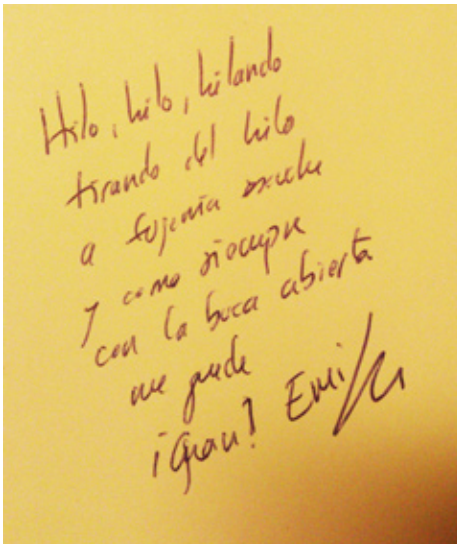 Hilo, hilo, hilando
tirando del hilo
a Eujenia escuche
y como siempre
con la boca abierta
me quede
¡Gran!